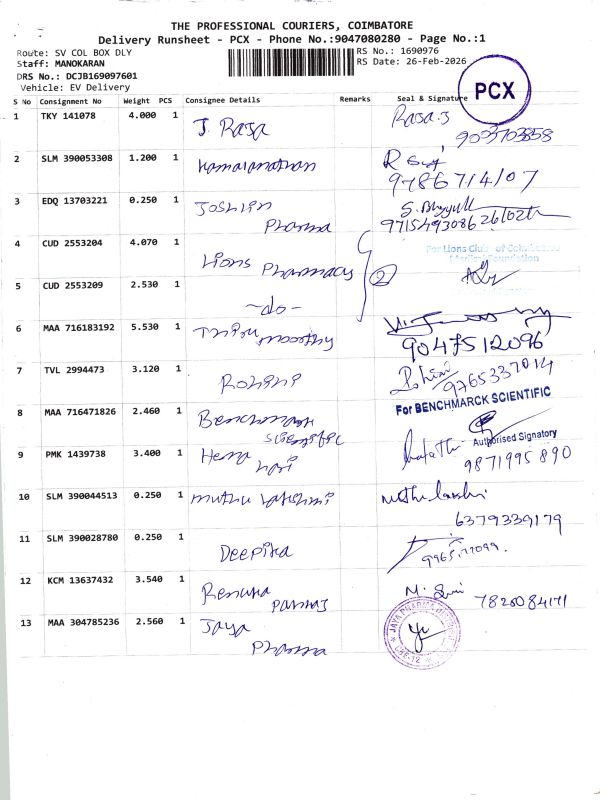 THE PROFESSIONAL COURIERS, COIMBATORE
Delivery Runsheet - PCX - Phone No.:9047080280 - Page No.:1
Route: SV COL BOX DLY
RS No.: 1690976
Staff: MANOKARAN
RS Date: 26-Feb-2026
DRS No.: DCJB169097601
Vehicle: EV Delivery
PCX
S No Consignment No Weight PCS Consignee Details Remarks Seal & Signature
1 TKY 141078 4.000 1 J. Raja Raja.J
9003703858
2 SLM 390053308 1.200 1 Kamalanathan
9786714107
3 EDQ 13703221 0.250 1 Joshian
Pharma
9715493086 26/02/26
4 CUD 2553204 4.070 1 Lions Pharmacy
For Lions Club of Coimbatore
Medical Foundation
2
5 CUD 2553209 2.530 1 -do-
6 MAA 716183192 5.530 1
9047512096
7 TVL 2994473 3.120 1 Rohini Rohini
9765337014
8 MAA 716471826 2.460 1 Benchmark
For BENCHMARCK SCIENTIFIC
Authorised Signatory
9 PMK 1439738 3.400 1 Hema
9871995890
10 SLM 390044513 0.250 1 muthu lakshmi
6379339179
11 SLM 390028780 0.250 1 Deepika
12 KCM 13637432 3.540 1 Renuka
7820084171
13 MAA 304785236 2.560 1 Jaya
Pharma